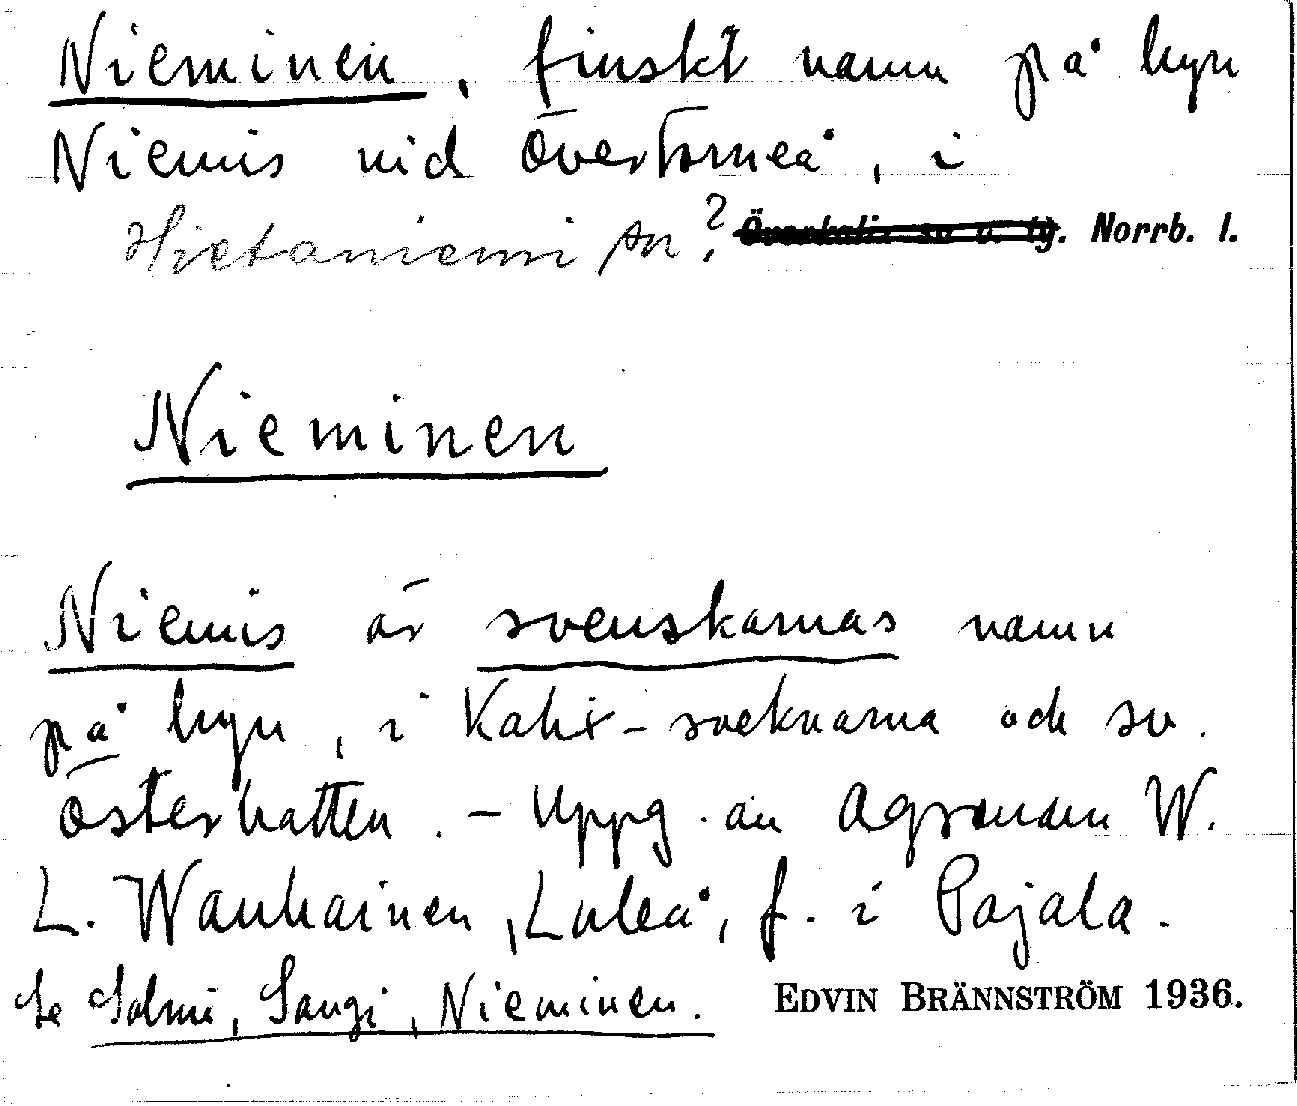 Nieminen, finskt namn på byn
Niemis vid Övertorneå, i
Hietaniemi sn? Överkalix sn o. tg. Norrb. l.
Nieminen
Niemis är svenskarnas namn
på byn, i Kalix-socknarna och sv.
Österbotten. - Uppg. av Agronom W.
L. Wanhainen, Luleå, f. i Pajala.
Se Salmi, Sangi, Nieminen. EDVIN BRÄNNSTRÖM 1936.